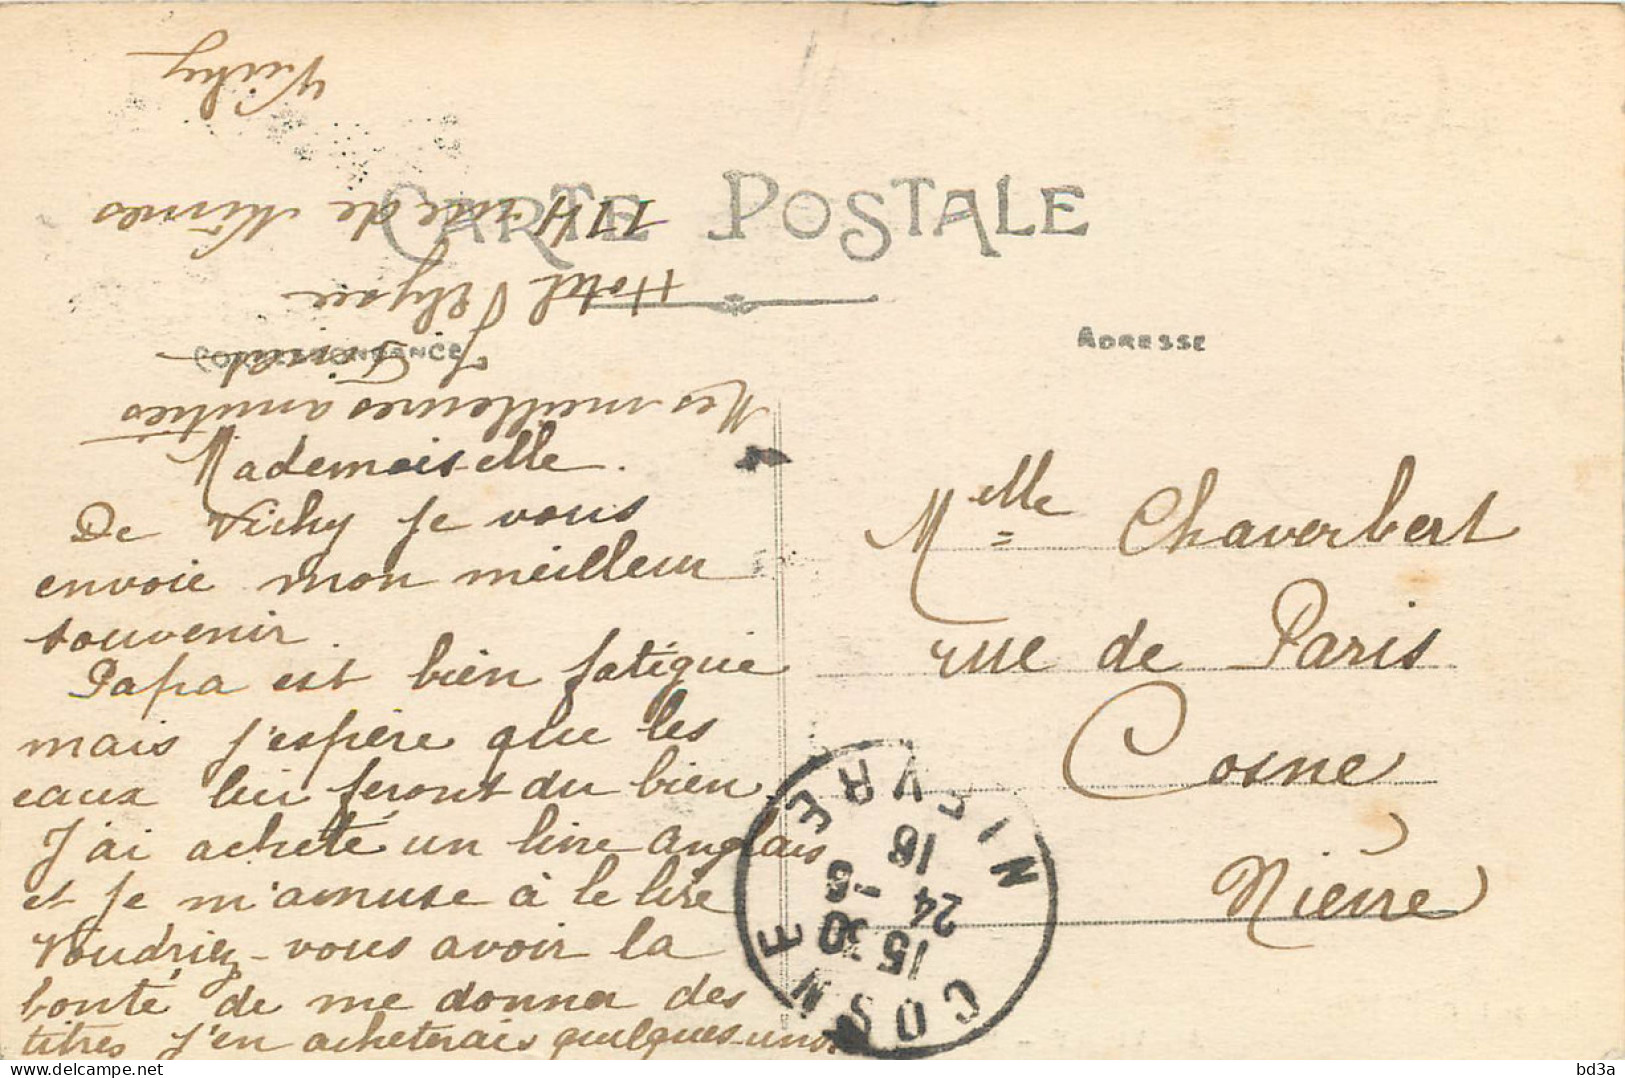 CARTE POSTALE
CORRESPONDANCE
ADRESSE
Mademoiselle.
De Vichy je vous
envoie mon meilleur
souvenir.
Papa est bien fatigué
mais j'espère que les
eaux lui feront du bien.
J'ai acheté un livre anglais
et je m'amuse à le lire
Voudriez-vous avoir la
bonté de me donner des
titres j'en achèterais quelques-uns.
Mes meilleures amitiés
Hotel Elysée
114 rue de Nîmes
Vichy
Melle Chaverbert
rue de Paris
Cosne
Nièvre
COSNE
15 30
24 -6
16
NIEVRE
bd3a